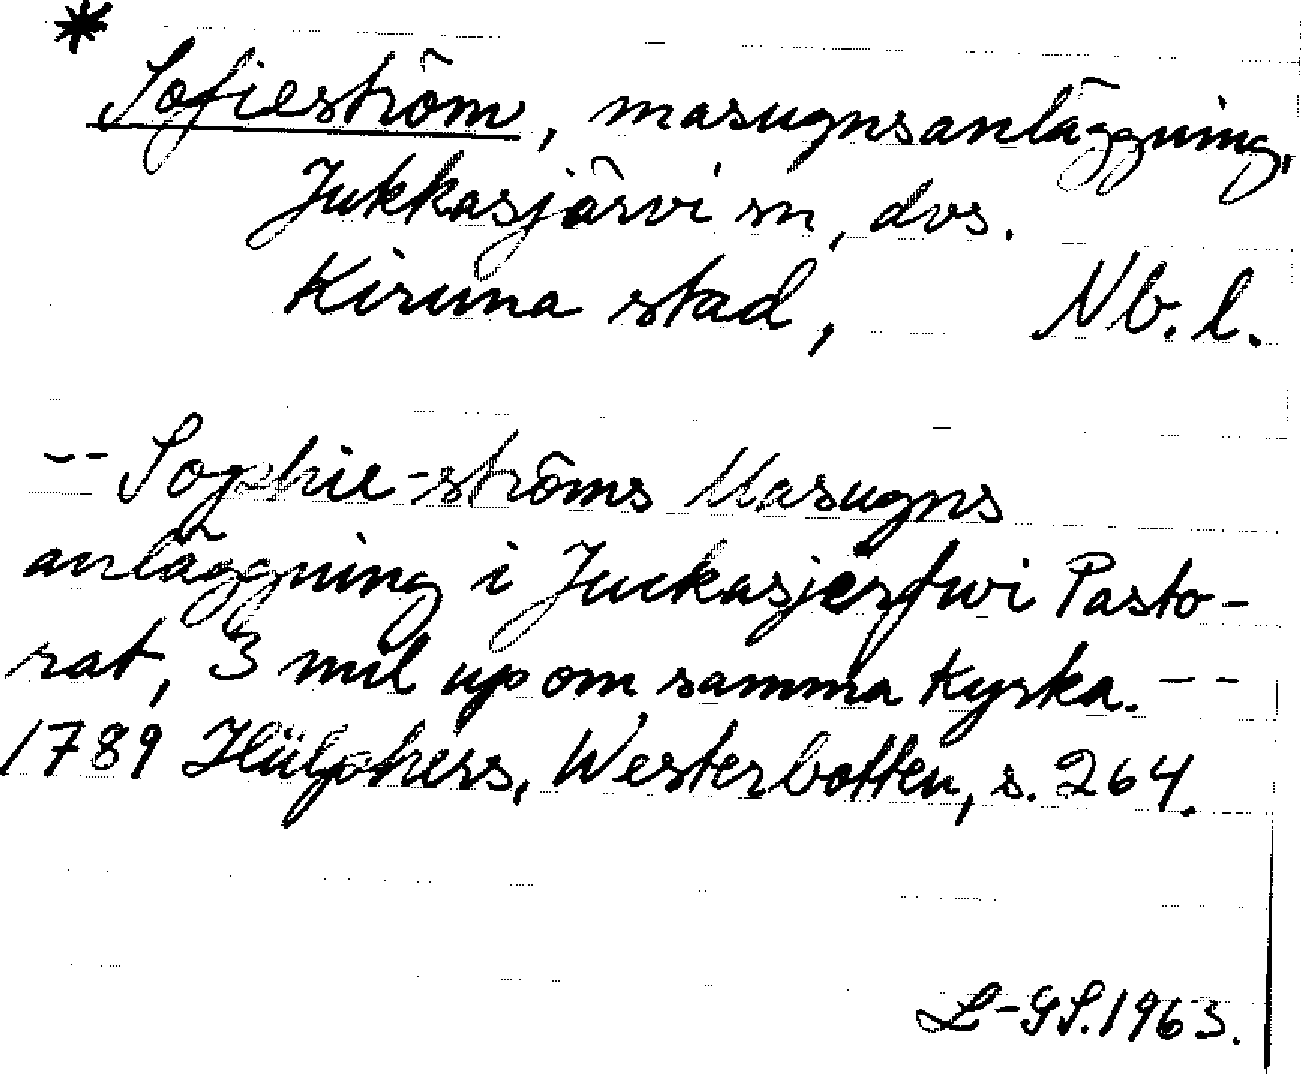 *
Sofieström, masugnsanläggning,
Jukkasjärvi sn, dvs.
Kiruna stad, Nb. l.
-- Sophie-ströms Masugns
anläggning i Juckasjerfwi Pasto-
rat, 3 mil up om samma Kyrka. --
1789 Hülphers, Westerbotten, s. 264.
L-GS. 1963.